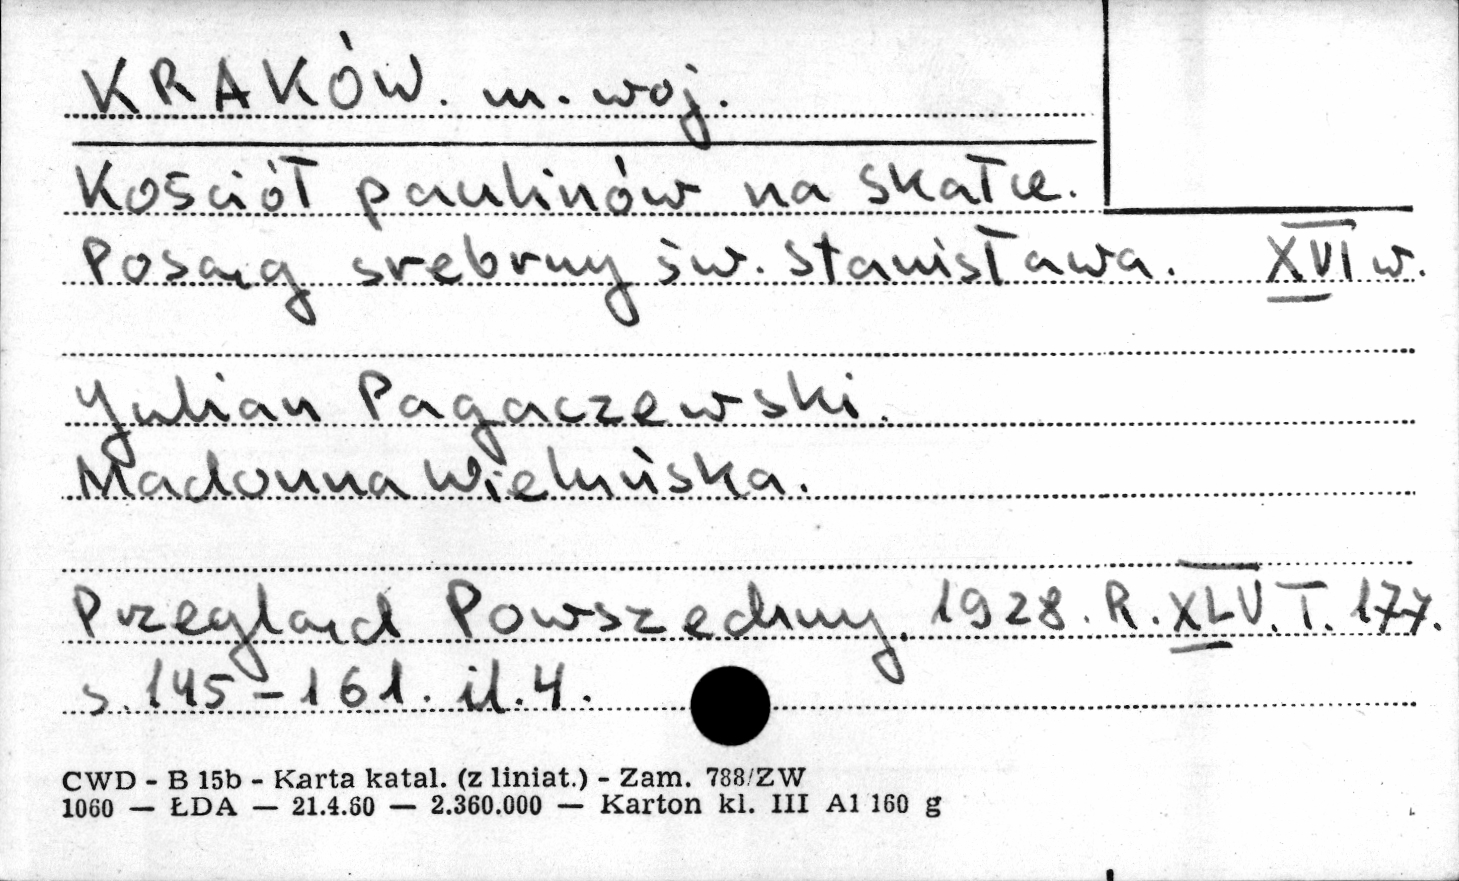 KRAKÓW. m. woj.
Kościół paulinów na Skałce.
Posąg srebrny św. Stanisława. XVI w.
Julian Pagaczewski.
Madonna Wieluńska.
Przegląd Powszechny. 1928. R. XLV. T. 177.
s. 145-161. il. 4.
CWD - B 15b - Karta katal. (z liniat.) - Zam. 788/ZW
1060 — ŁDA — 21.4.60 — 2.360.000 — Karton kl. III A1 160 g